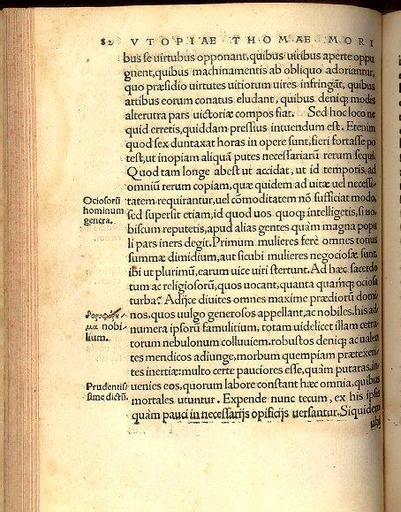 82 VTOPIAE THOMAE MORI
bus se uirtubus opponant, quibus uiribus aperte oppu
gnent, quibus machinamentis ab obliquo adoriantur,
quo præsidio uirtutes uitiorum uires infringāt, quibus
artibus eorum conatus eludant, quibus deniq; modis
alterutra pars uictoriæ compos fiat. Sed hoc loco ne
quid erretis, quiddam pressius intuendum est. Etenim
quod sex duntaxat horas in opere sunt, fieri fortasse po
test, ut inopiam aliquā putes necessariarū rerum sequi.
Quod tam longe abest ut accidat, ut id temporis, ad
omniū rerum copiam, quæ quidem ad uitæ uel necessi-
Ociosorū
hominum
genera.
tatem requirantur, uel cōmoditatem nō sufficiat modo,
sed supersit etiam, id quod uos quoq; intelligetis, si uo-
biscum reputetis, apud alias gentes quàm magna popu
li pars iners degit. Primum mulieres ferè omnes totius
summæ dimidium, aut sicubi mulieres negociosæ sunt,
ibi ut plurimū, earum uice uiri stertunt. Ad hæc sacerdo
tum ac religiosorū, quos uocant, quanta quámq; ociosa
turba? Adijce diuites omnes maxime prædiorū domi-
nobi
lium.
nos, quos uulgo generosos appellant, ac nobiles, his ad
numera ipsorū famulitium, totam uidelicet illam cetra-
torum nebulonum colluuiem. robustos deniq; ac ualen
tes mendicos adiunge, morbum quempiam prætexen-
tes inertiæ: multo certe pauciores esse, quàm putaras, in
Prudentis-
sime dictū.
uenies eos, quorum labore constant hæc omnia, quibus
mortales utuntur. Expende nunc tecum, ex his ipsis
quàm pauci in necessarijs opificijs uersantur. Siquidem
ubi